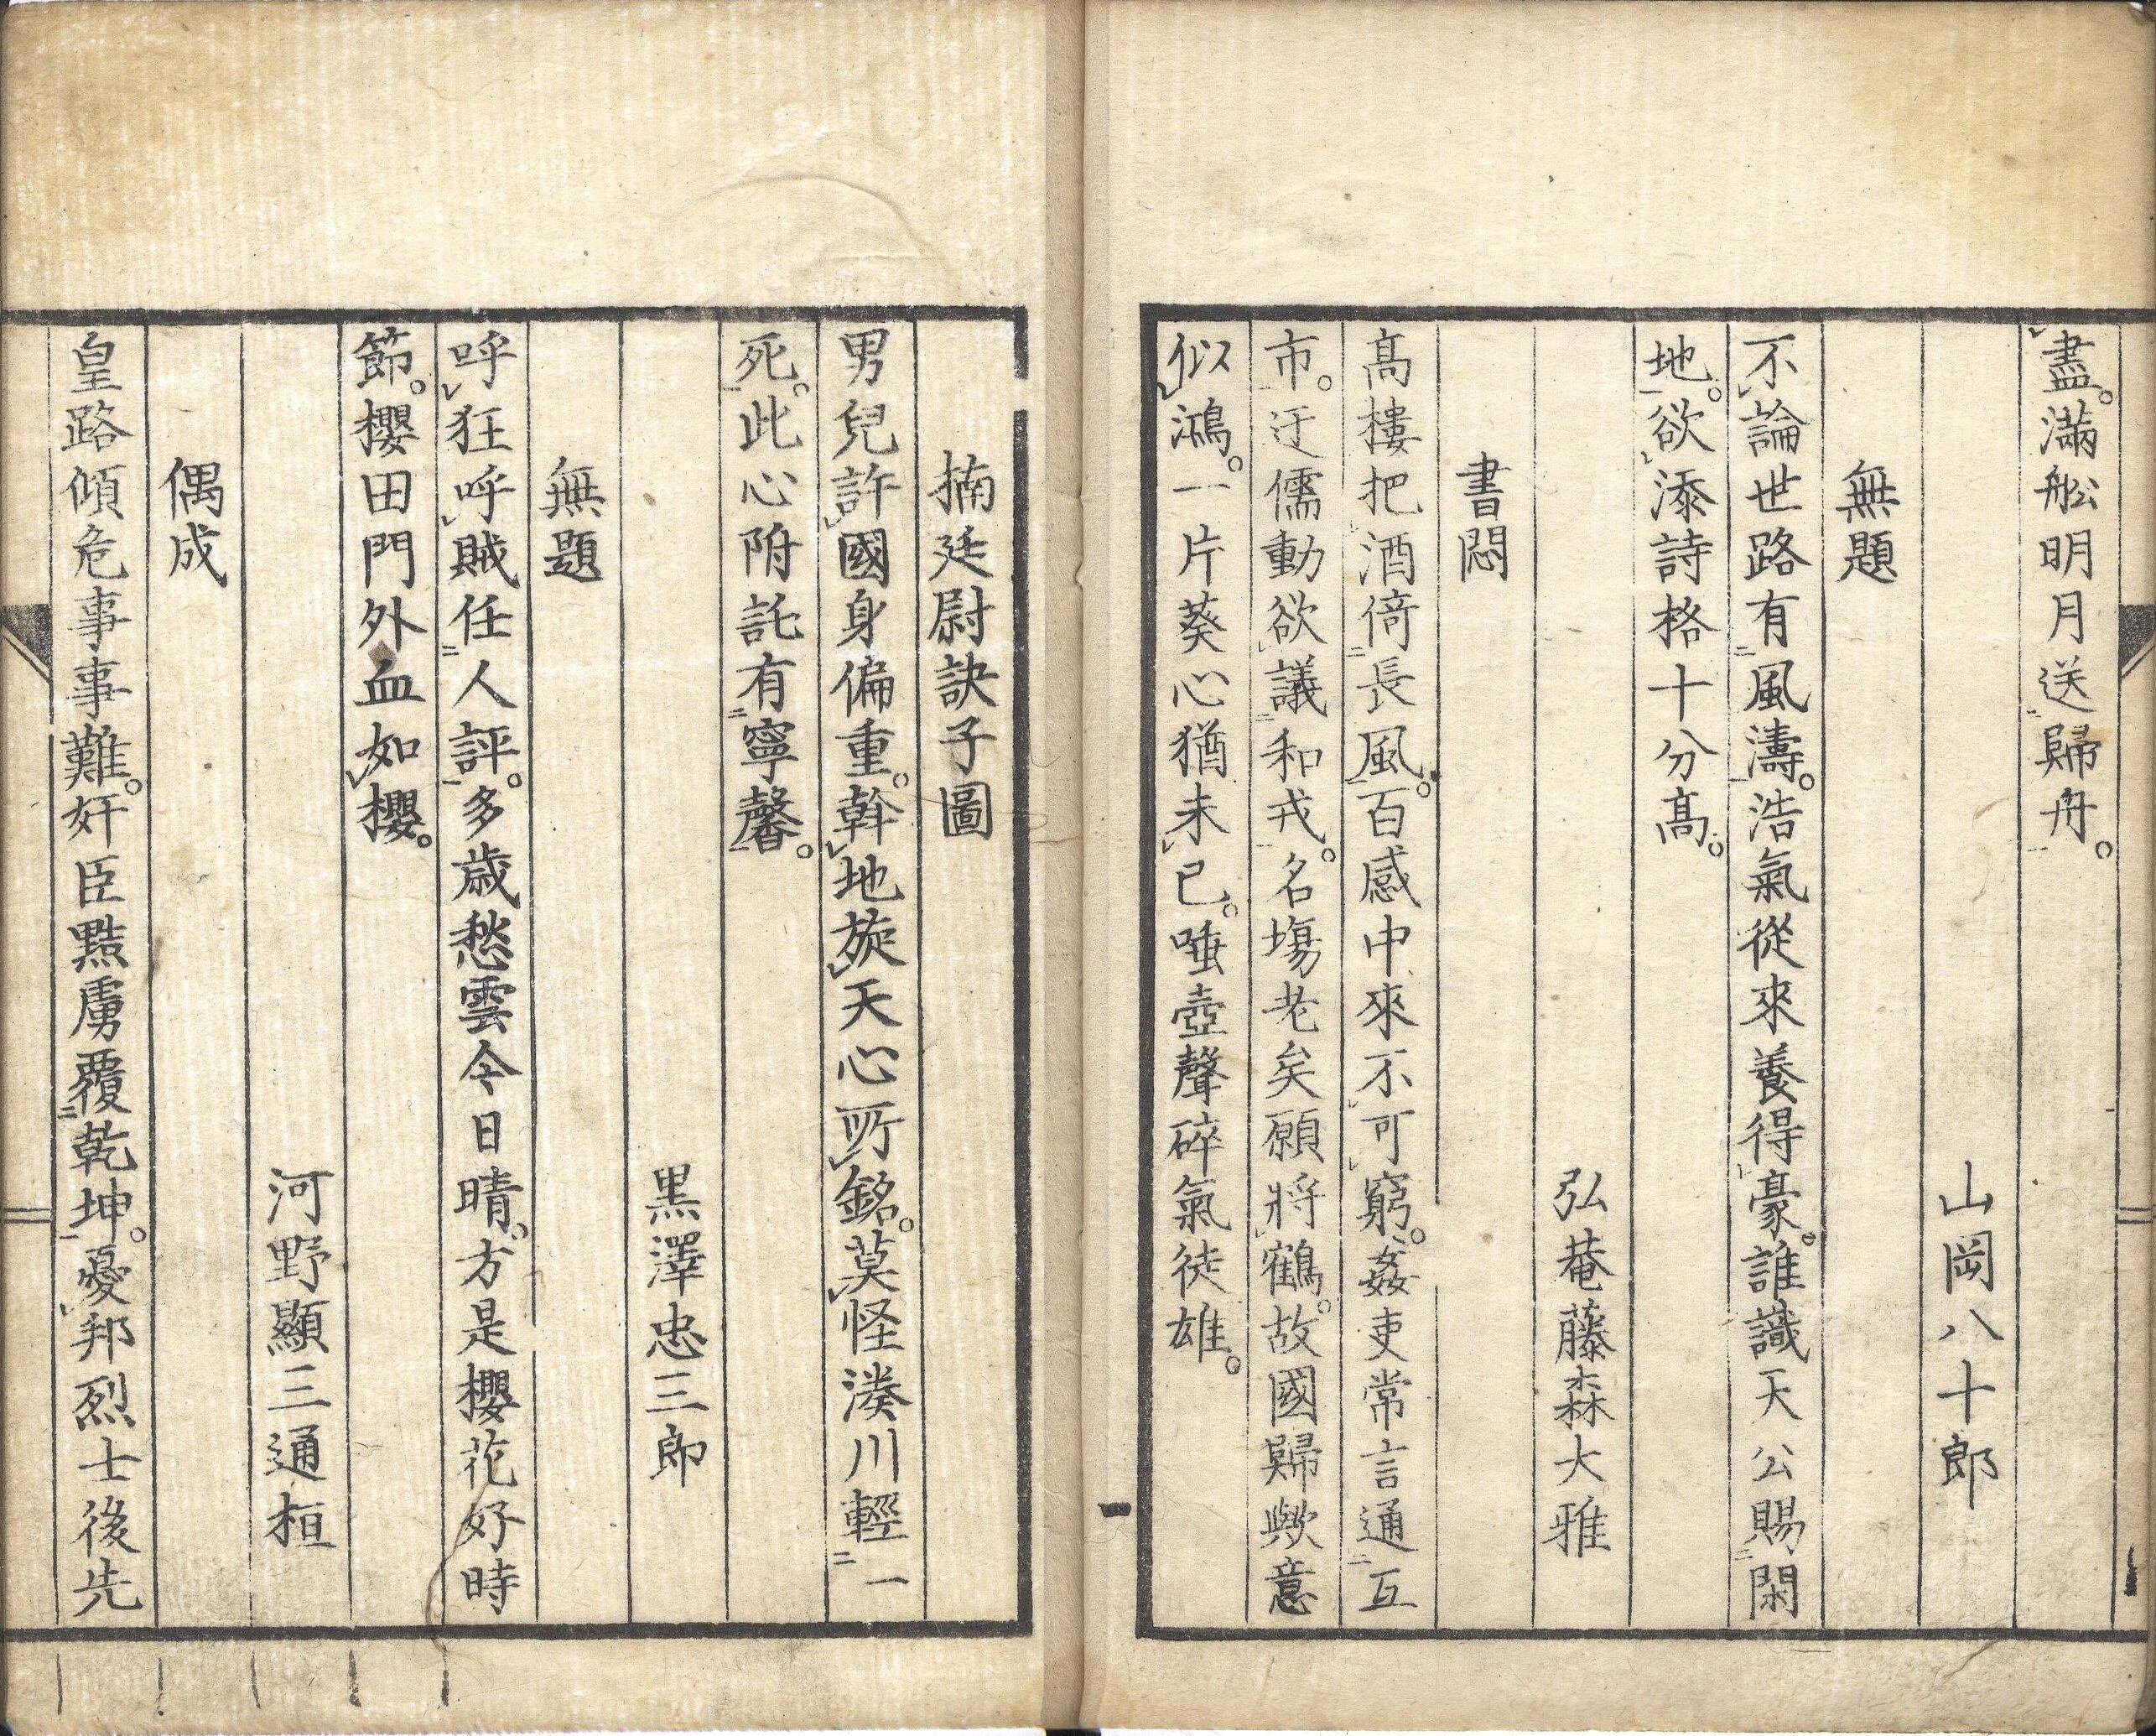 盡。滿舩明月送歸舟。
山岡八十郎
無題
不論世路有風濤。浩氣從來養得豪。誰識天公賜閑
地。欲添詩格十分髙。
弘菴藤森大雅
書悶
髙樓把酒倚長風。百感中來不可窮。姦吏常言通互
市。迂儒動欲議和戎。名塲老矣願將鶴。故國歸歟意
似鴻。一片葵心猶未已。唾壺聲碎氣徒雄。
楠廷尉訣子圖
男兒許國身偏重。斡地旋天心所銘。莫怪湊川輕一
死。此心附託有寧馨。
黒澤忠三郎
無題
呼狂呼賊任人評。多歳愁雲今日晴。方是櫻花好時
節。櫻田門外血如櫻。
河野顯三通桓
偶成
皇路傾危事事難。奸臣黠虜覆乾坤。憂邦烈士後先